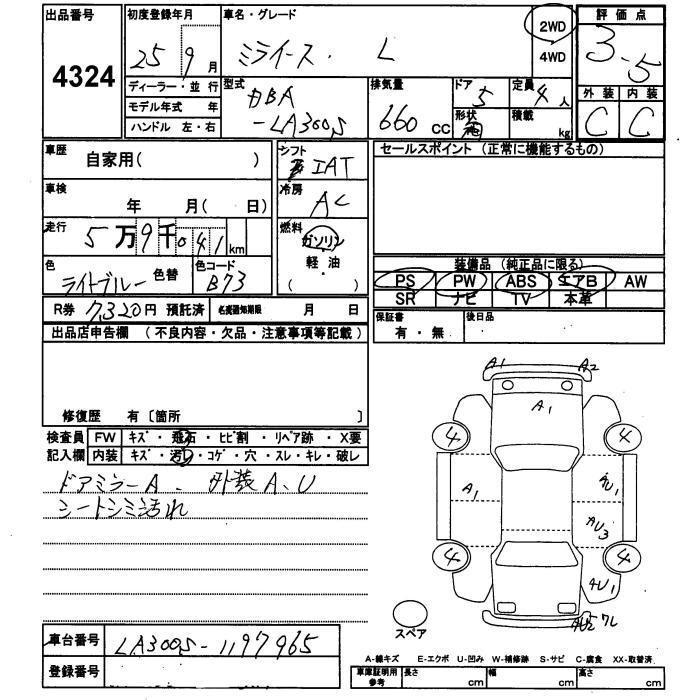 出品番号
4324
初度登録年月
25 9 月
ディーラー・並 行
モデル年式 年
ハンドル 左・右
車名・グレード
ミライース. L
2WD
4WD
評 価 点
3.5
外 装 内 装
C C
型式
DBA
-LA300S
排気量
660 cc
ドア 5
形状
定員 4 人
積載 kg
車歴
自家用( )
車検
年 月( 日)
走行
5 万 9 千 041 km
色
ライトブルー 色替
色コード
B73
シフト
IAT
冷房
AC
燃料
ガソリン
軽・油
( )
セールスポイント (正常に機能するもの)
装備品 (純正品に限る)
PS PW ABS エアB AW
SR ナビ TV 本革
保証書
有 ・ 無
後日品
R券 7,320円 預託済 名変通知期限 月 日
出品店申告欄 (不良内容・欠品・注意事項等記載)
修復歴 有〔箇所 〕
検査員 FW キズ・飛石・ヒビ割・リペア跡・X要
記入欄 内装 キズ・汚・コゲ・穴・スレ・キレ・破レ
ドアミラーA. 外装A.U
シートシミ汚れ
A1 A2
A1
4 4
A1 4U1
AU3
4 4
4U1
AU2 ワレ
スペア
車台番号 LA300S-1197965
登録番号
A-線キズ E-エクボ U-凹み W-補修跡 S-サビ C-腐食 XX-取替済
車庫証明用参考 長さ cm 幅 cm 高さ cm